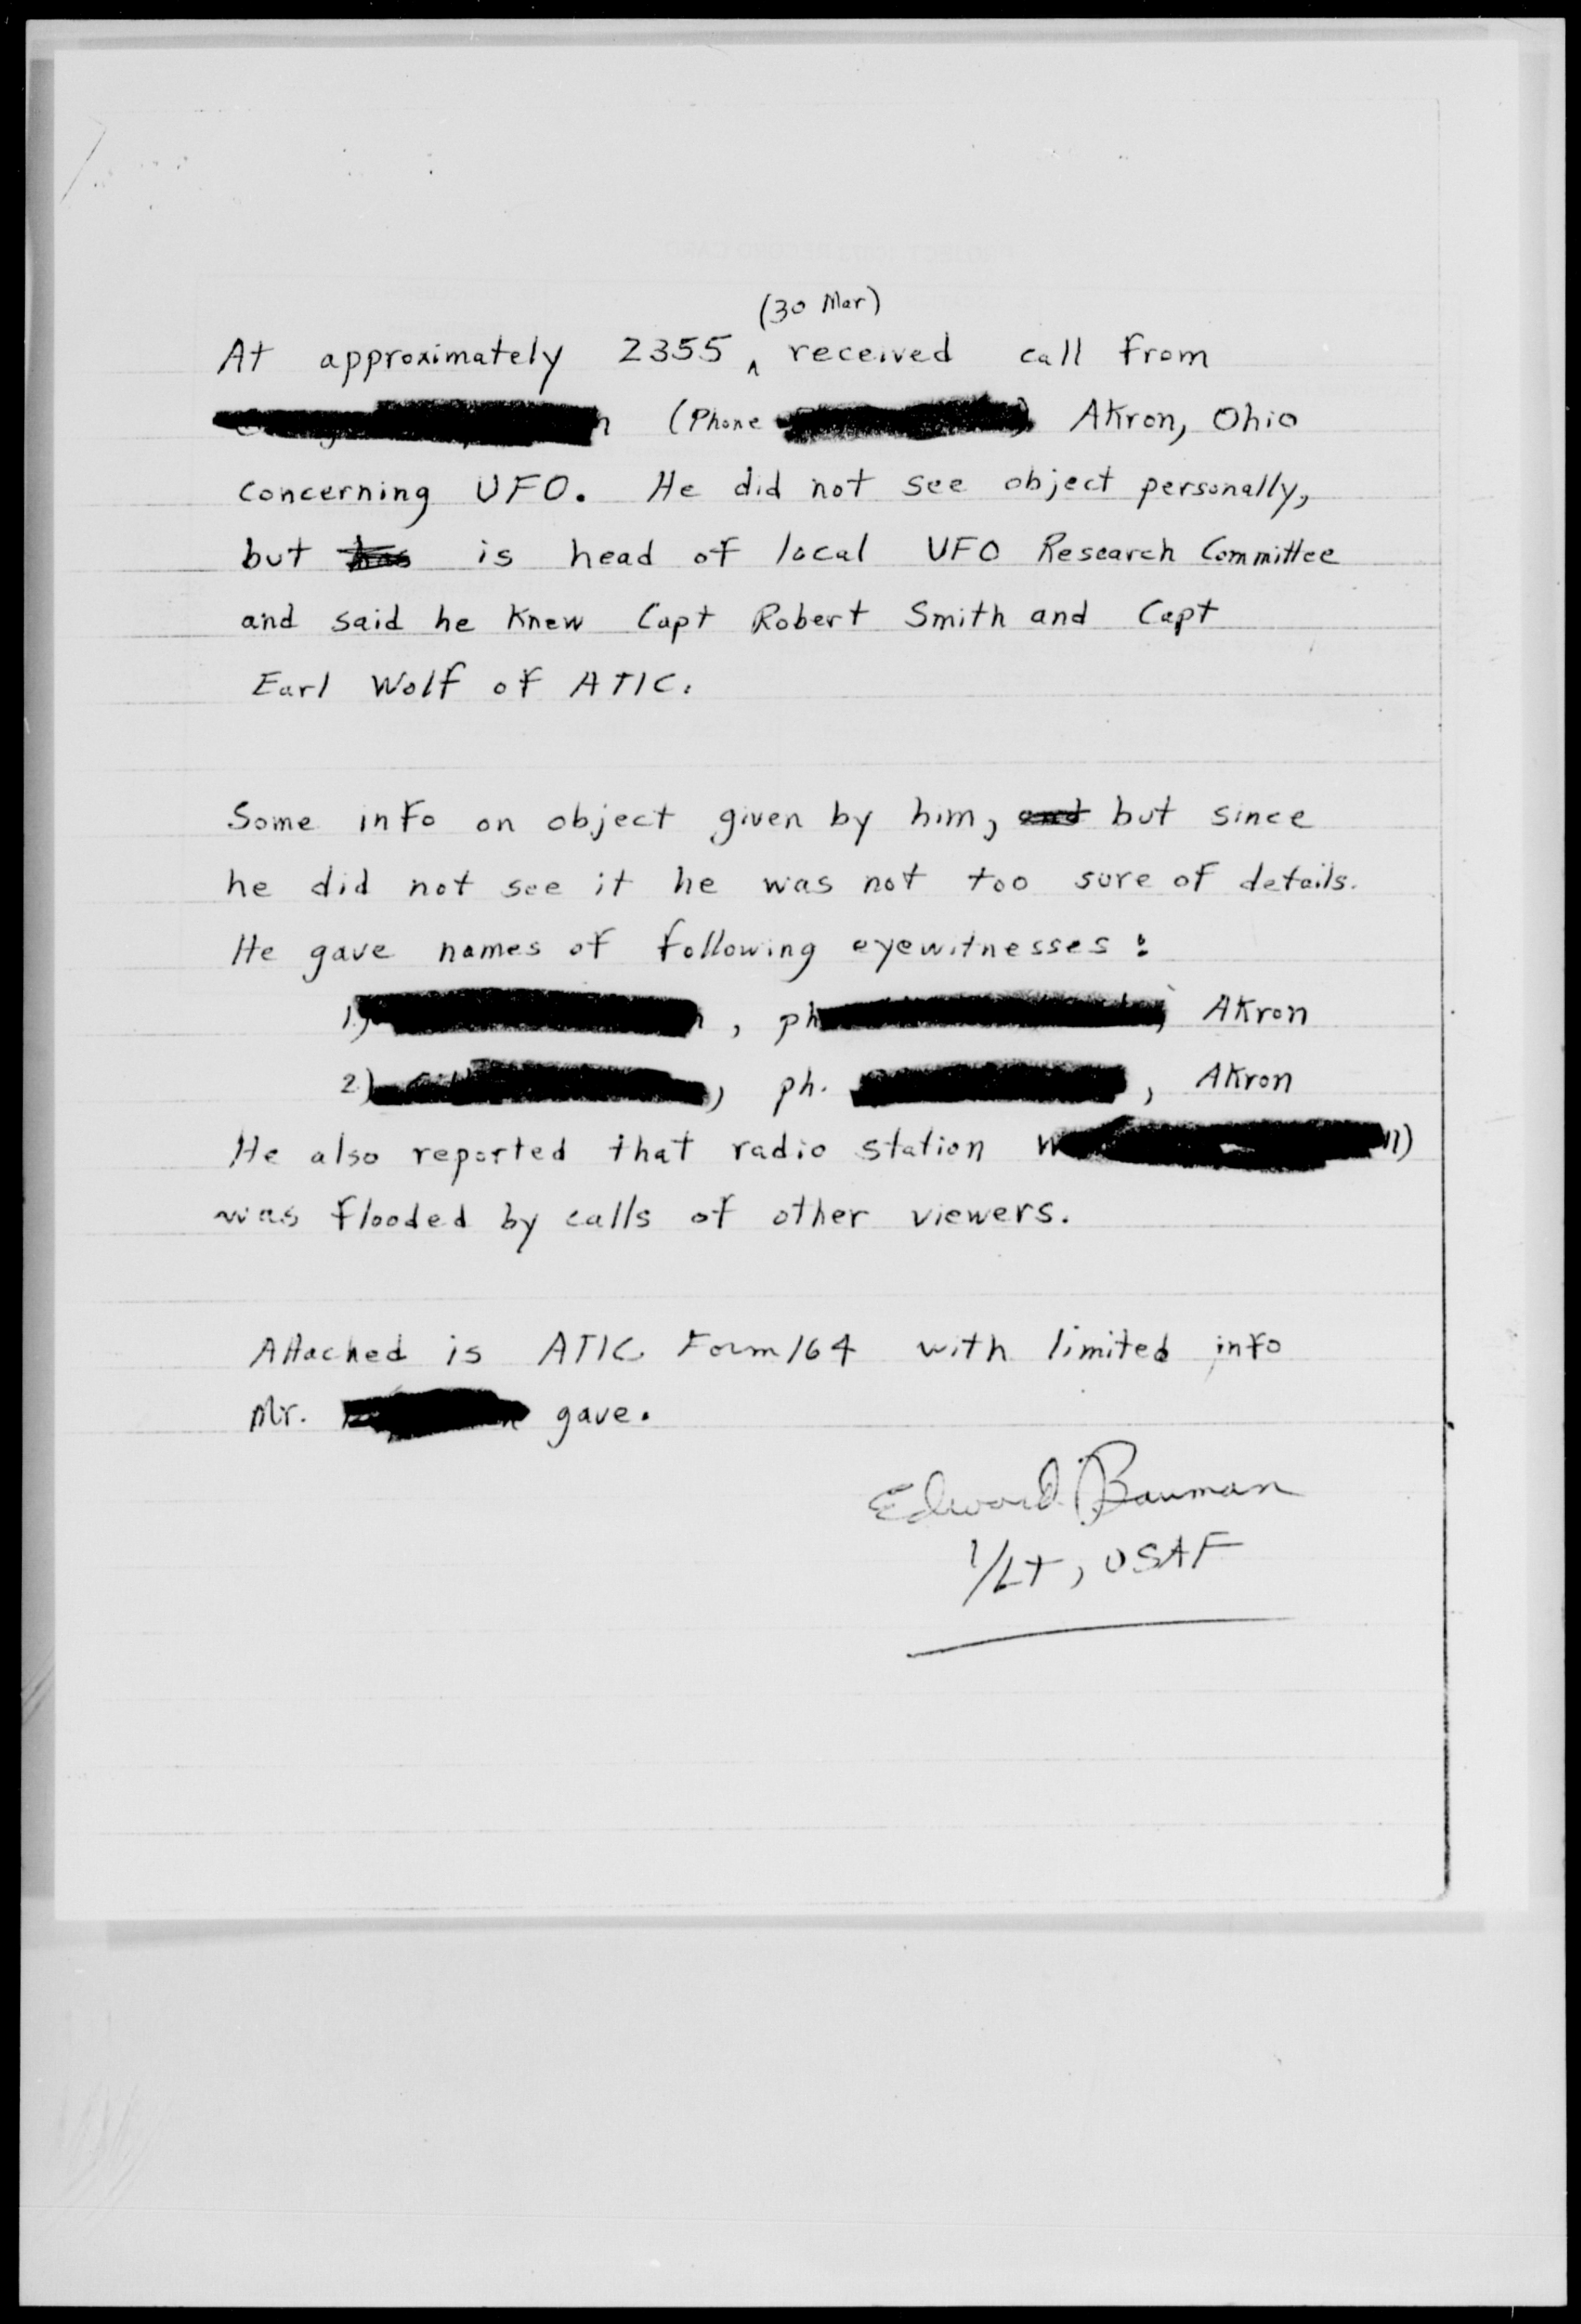 (30 Mar)
At approximately 2355 ^ received call from
(Phone Akron, Ohio
concerning UFO. He did not see object personally,
but has is head of local UFO Research Committee
and said he knew Capt Robert Smith and Capt
Earl Wolf of ATIC.
Some info on object given by him, and but since
he did not see it he was not too sure of details.
He gave names of following eyewitnesses:
1.) , ph Akron
2.) , ph. , Akron
He also reported that radio station W
was flooded by calls of other viewers.
Attached is ATIC Form 164 with limited info
Mr. gave.
Edward Bauman
1/Lt, USAF